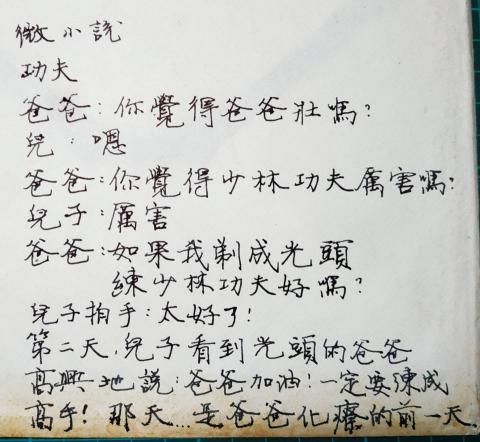 微小說
功夫
爸爸:你覺得爸爸壯嗎?
兒:嗯
爸爸:你覺得少林功夫厲害嗎?
兒子:厲害
爸爸:如果我剃成光頭
練少林功夫好嗎?
兒子拍手:太好了!
第二天,兒子看到光頭的爸爸
高興地說:爸爸加油!一定要練成
高手!那天...是爸爸化療的前一天.